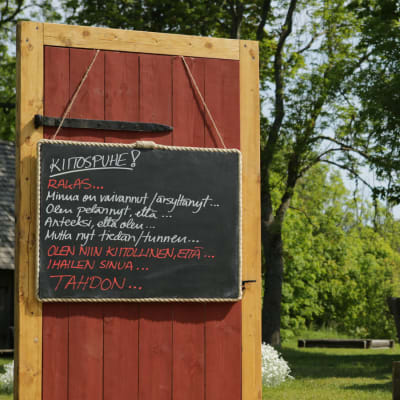 KIITOSPUHE!
RAKAS...
Minua on vaivannut /ärsyttänyt...
Olen pelännyt, että ...
Anteeksi, että olen...
Mutta nyt tiedän/tunnen...
OLEN NIIN KIITOLLINEN, ETTÄ...
IHAILEN SINUA...
TAHDON...